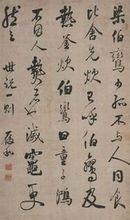 梁伯鸞少孤不與人同食
比舍先炊呼伯鸞及
熱釜炊伯鸞曰童子鴻
不因人熱者也滅竈更
然之 世說一則